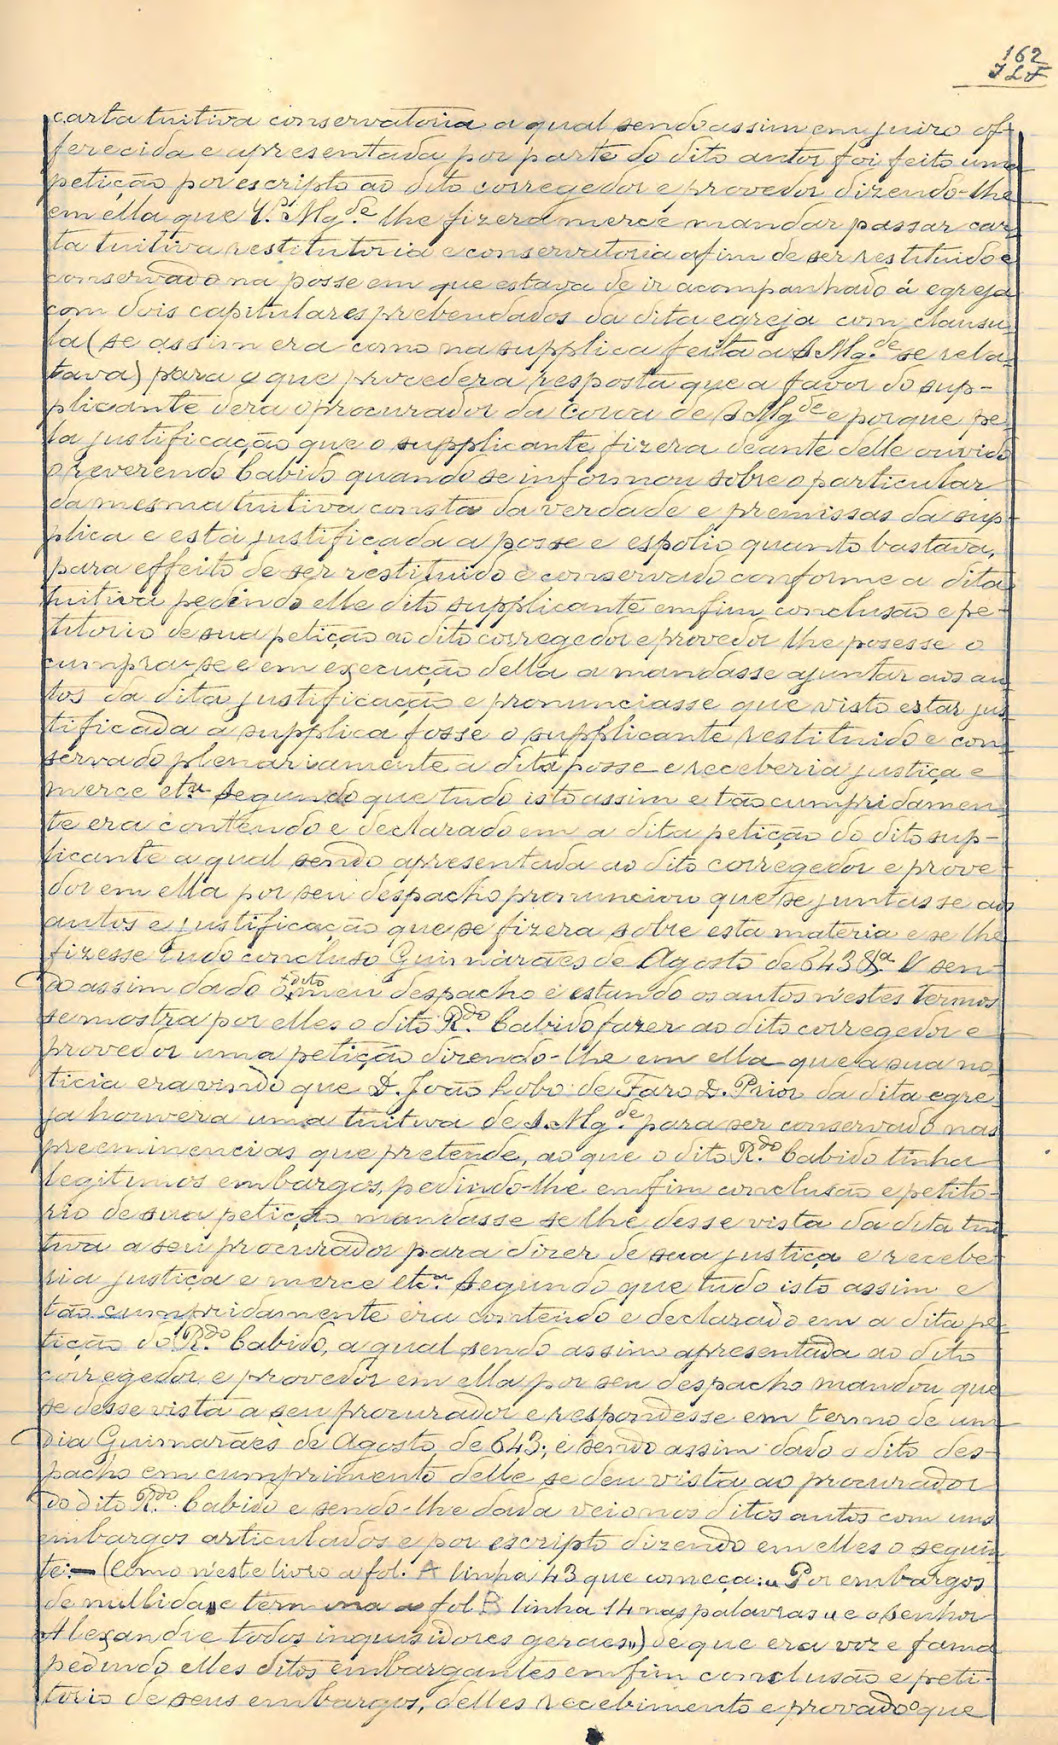 162
JLF
carta tuitiva conservatoria a qual sendo assim em juizo of-
ferecida e apresentada por parte do dito autor foi feito uma
petição por escripto ao dito corregedor e provedor dizendo-lhe
em ella que V.ª Mg.de lhe fizera merce mandar passar car-
ta tuitiva restitutoria e conservatoria afim de ser restituido e
conservado na posse em que estava de ir acompanhado á egreja
com dois capitulares prebendados da dita egreja com clausu-
la (se assim era como na supplica feita a S Mg.de se rela-
tava) para o que procedera resposta que a favor do sup-
plicante dera o procurador da Coroa de S Mg de e porque pe-
la justificação que o supplicante fizera deante delle ouvido
o reverendo Cabido quando se informou sobre o particular
da mesma tuitiva consta da verdade e premissas da sup-
plica e está justificada a posse e espolio quanto bastava,
para effeito de ser restituido e conservado conforme a dita
tuitiva pedindo elle dito supplicante emfim conclusão e pe-
titorio de sua petição ao dito corregedor e provedor lhe posesse o
cumpra-se e em execução della a mandasse ajuntar aos au-
tos da dita justificação e pronunciasse que visto estar jus-
tificada a supplica fosse o supplicante restituido e con-
servado plenariamente a dita posse e receberia justiça e
merce etc.ª Segundo que tudo isto assim e tão cumpridamen-
te era contendo e declarado em a dita petição do dito sup-
licante a qual sendo apresentada ao dito corregedor e prove-
dor em ella por seu despacho pronunciou que se juntasse aos
autos e justificação que se fizera sobre esta materia e se lhe
fizesse tudo concluso Guimarães de Agosto de 643 E sen-
do assim dado o dito meu despacho e estando os autos n'estes termos
se mostra por elles o dito R.do Cabido fazer ao dito corregedor e
provedor uma petição dizendo-lhe em ella que a sua no-
ticia era vindo que D. João Lobo de Faro D. Prior da dita egre-
ja houvera uma tuitiva de S. Mg.de para ser conservado nas
preeminencias que pretende, ao que o dito R.do Cabido tinha
legitimos embargos, pedindo-lhe emfim conclusão e petito-
rio de sua petição mandasse se lhe desse vista da dita tui-
tiva a seu procurador para dizer de sua justiça e recebe-
ria justiça e merce etc.ª Segundo que tudo isto assim e
tão cumpridamente era contendo e declarado em a dita pe-
tição do R.do Cabido, a qual sendo assim apresentada ao dito
corregedor e provedor em ella por seu despacho mandou que
se desse vista a seu procurador e respondesse em termo de um
dia Guimarães de Agosto de 643; e sendo assim dado o dito des-
pacho em cumprimento delle se deu vista ao procurador
do dito R.do Cabido e sendo-lhe dada veio nos ditos autos com uns
embargos articulados e por escripto dizendo em elles o seguin-
te:— (Como n'este livro a fol. A linha 43 que começa: „Por embargos
de nullidade termina a fol B linha 14 nas palavras „e o senhor
Alexandre todos inquisidores geraes„) de que era voz e fama
pedindo elles ditos embargantes emfim conclusão e peti-
torio de seus embargos, delles recebimento e provado que